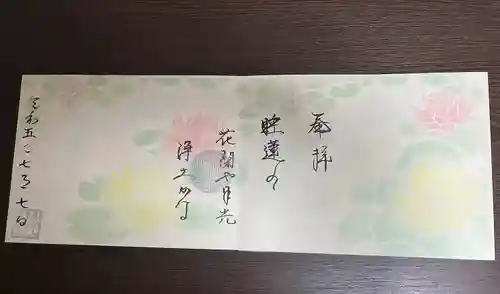 奉拝
睡蓮の
花開や月光
浄土かな
令和五、七月七日